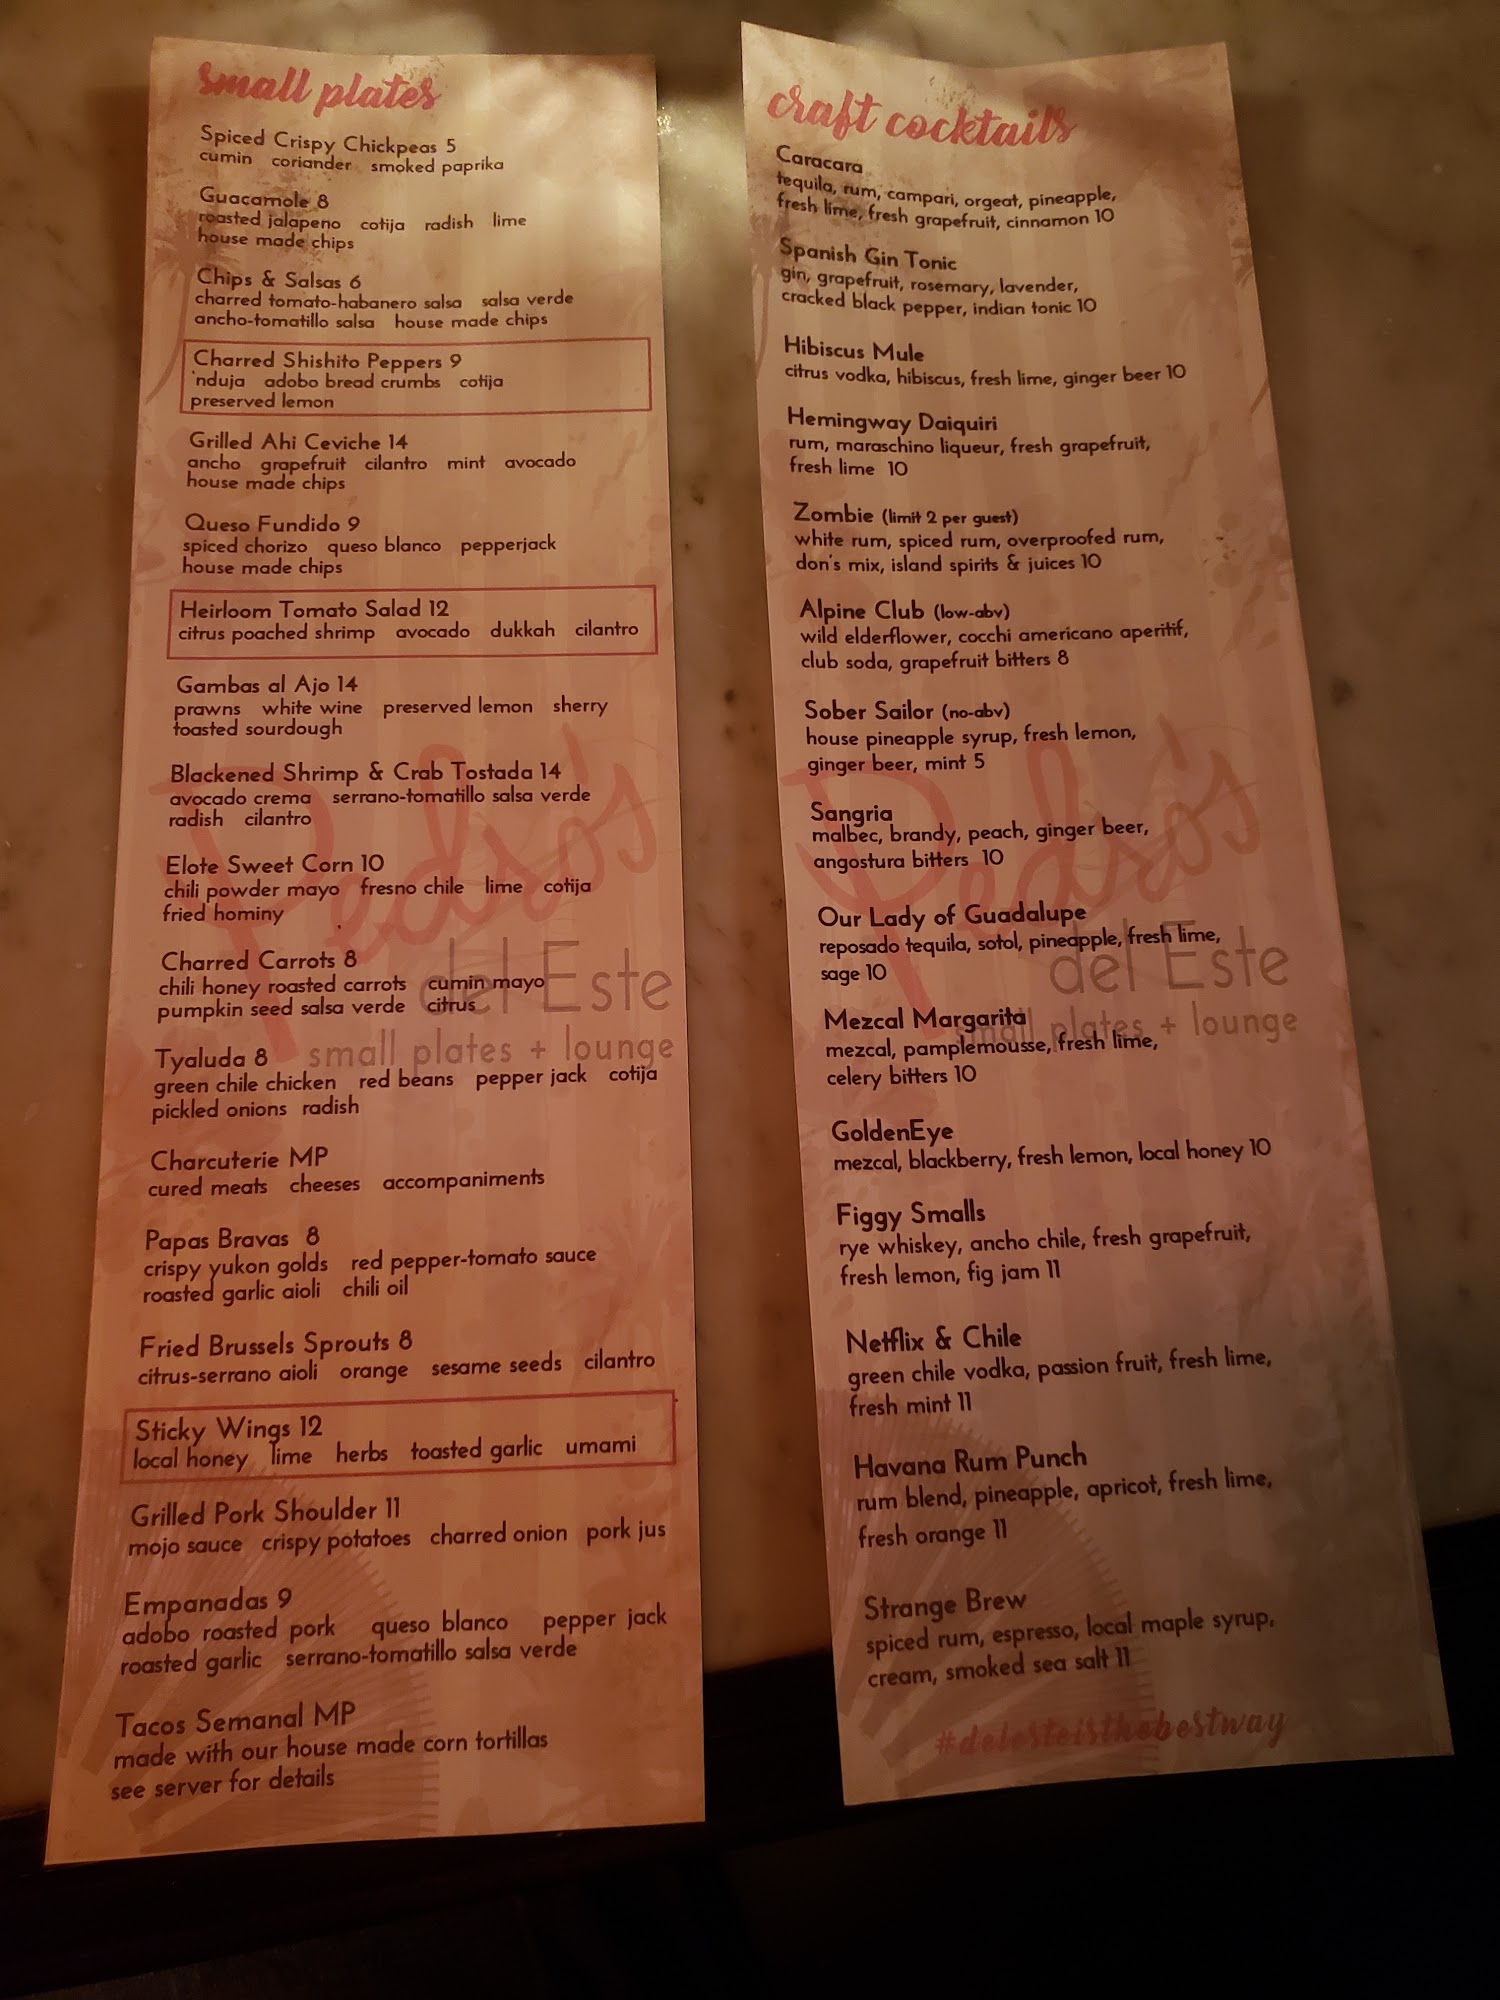 small plates
Spiced Crispy Chickpeas 5
cumin coriander smoked paprika
Guacamole 8
roasted jalapeno cotija radish lime
house made chips
Chips & Salsas 6
charred tomato-habanero salsa salsa verde
ancho-tomatillo salsa house made chips
Charred Shishito Peppers 9
'nduja adobo bread crumbs cotija
preserved lemon
Grilled Ahi Ceviche 14
ancho grapefruit cilantro mint avocado
house made chips
Queso Fundido 9
spiced chorizo queso blanco pepperjack
house made chips
Heirloom Tomato Salad 12
citrus poached shrimp avocado dukkah cilantro
Gambas al Ajo 14
prawns white wine preserved lemon sherry
toasted sourdough
Blackened Shrimp & Crab Tostada 14
avocado crema serrano-tomatillo salsa verde
radish cilantro
Elote Sweet Corn 10
chili powder mayo fresno chile lime cotija
fried hominy
Charred Carrots 8
chili honey roasted carrots cumin mayo
pumpkin seed salsa verde citrus
Tyaluda 8
green chile chicken red beans pepper jack cotija
pickled onions radish
Charcuterie MP
cured meats cheeses accompaniments
Papas Bravas 8
crispy yukon golds red pepper-tomato sauce
roasted garlic aioli chili oil
Fried Brussels Sprouts 8
citrus-serrano aioli orange sesame seeds cilantro
Sticky Wings 12
local honey lime herbs toasted garlic umami
Grilled Pork Shoulder 11
mojo sauce crispy potatoes charred onion pork jus
Empanadas 9
adobo roasted pork queso blanco pepper jack
roasted garlic serrano-tomatillo salsa verde
Tacos Semanal MP
made with our house made corn tortillas
see server for details
Pedro's
del Este
small plates + lounge
craft cocktails
Caracara
tequila, rum, campari, orgeat, pineapple,
fresh lime, fresh grapefruit, cinnamon 10
Spanish Gin Tonic
gin, grapefruit, rosemary, lavender,
cracked black pepper, indian tonic 10
Hibiscus Mule
citrus vodka, hibiscus, fresh lime, ginger beer 10
Hemingway Daiquiri
rum, maraschino liqueur, fresh grapefruit,
fresh lime 10
Zombie (limit 2 per guest)
white rum, spiced rum, overproofed rum,
don's mix, island spirits & juices 10
Alpine Club (low-abv)
wild elderflower, cocchi americano aperitif,
club soda, grapefruit bitters 8
Sober Sailor (no-abv)
house pineapple syrup, fresh lemon,
ginger beer, mint 5
Sangria
malbec, brandy, peach, ginger beer,
angostura bitters 10
Our Lady of Guadalupe
reposado tequila, sotol, pineapple, fresh lime,
sage 10
Mezcal Margarita
mezcal, pamplemousse, fresh lime,
celery bitters 10
GoldenEye
mezcal, blackberry, fresh lemon, local honey 10
Figgy Smalls
rye whiskey, ancho chile, fresh grapefruit,
fresh lemon, fig jam 11
Netflix & Chile
green chile vodka, passion fruit, fresh lime,
fresh mint 11
Havana Rum Punch
rum blend, pineapple, apricot, fresh lime,
fresh orange 11
Strange Brew
spiced rum, espresso, local maple syrup,
cream, smoked sea salt 11
#delesteisthebestway
Pedro's
del Este
small plates + lounge